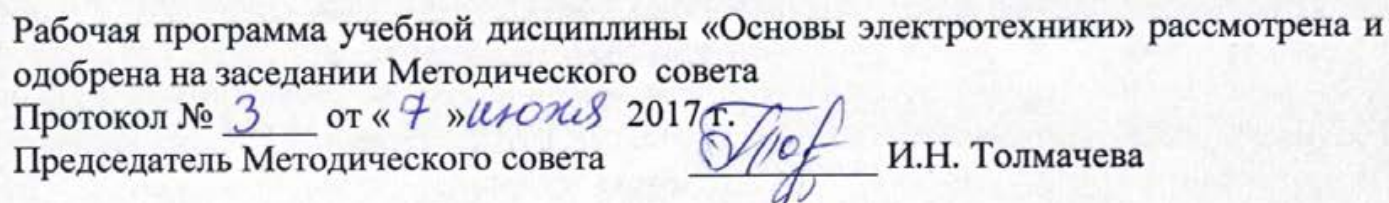 Рабочая программа учебной дисциплины «Основы электротехники» рассмотрена и
одобрена на заседании Методического совета
Протокол № 3 от « 7 » июня 2017 г.
Председатель Методического совета И.Н. Толмачева